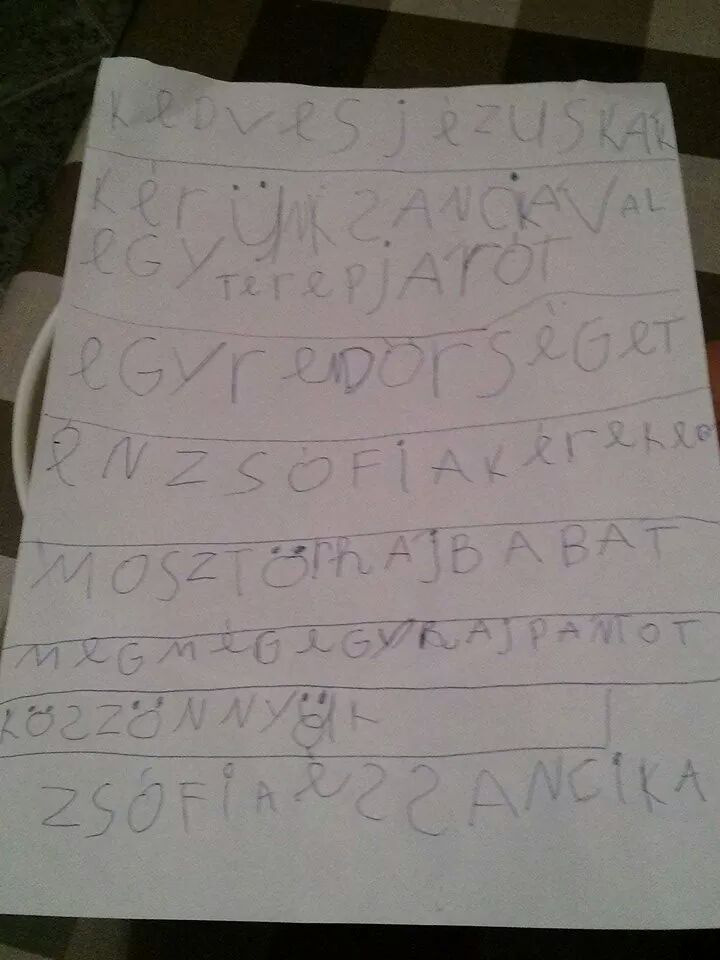 KeDVeS jéZUSKAK
KérÜNK SZANCIKAVAL
eGY TerePjÁrÓT
eGY reNDŐrSéGeT
éN ZSÓFIA Kérekeg
MOSZTÖrhAjBABAT
MeGMéGeGYhAjPANTOT
KÖSZZÖNNYÜK
ZSÓFIA éS SZANCIKA